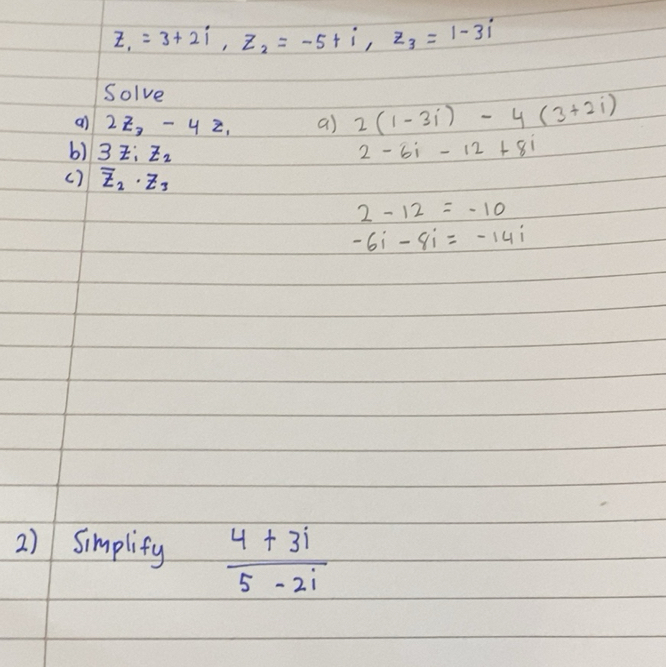 z₁ = 3+2i, z₂ = -5+i, z₃ = 1-3i
Solve
a) 2z₃ - 4z₁
b) 3z₁z₂
c) z̅₂ · z₃
a) 2(1-3i) - 4(3+2i)
2 - 6i - 12 + 8i
2 - 12 = -10
-6i - 8i = -14i
2) Simplify (4 + 3i)/(5 - 2i)